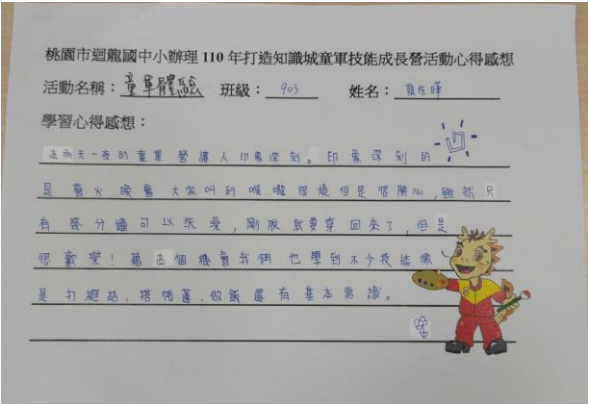 桃園市迴龍國中小辦理110年打造知識城童軍技能成長營活動心得感想
活動名稱：童軍體驗 班級：903 姓名：
學習心得感想：
這兩天一夜的童軍營讓人印象深刻。印象深刻的
是營火晚會大家叫到喉嚨很燒但是很開心，雖然只
有幾分鐘可以洗澡，剛脫就要穿回來了，但是
很歡樂！藉這個機會我們也學到不少技能像
是打繩結、搭帳篷、做飯還有基本常識。